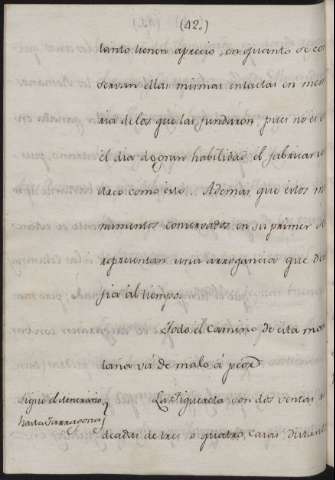 (42.)
tanto tienen aprecio, en quanto se co
servan ellas mismas intactas en me
ria de los que las fundaron, pues no es e
el dia de gran habilidad el fabricar
taco como esto... Ademas que estos m
numentos conservados en su primer s
representan una arrogancia que de
fia al tiempo.
Todo el Camino de esta mo
tana vá de malo á peor
Sigue el itenerario
hasta Tarragona
Las Figuereta son dos ventas
deadas de tres o quatro casas distante